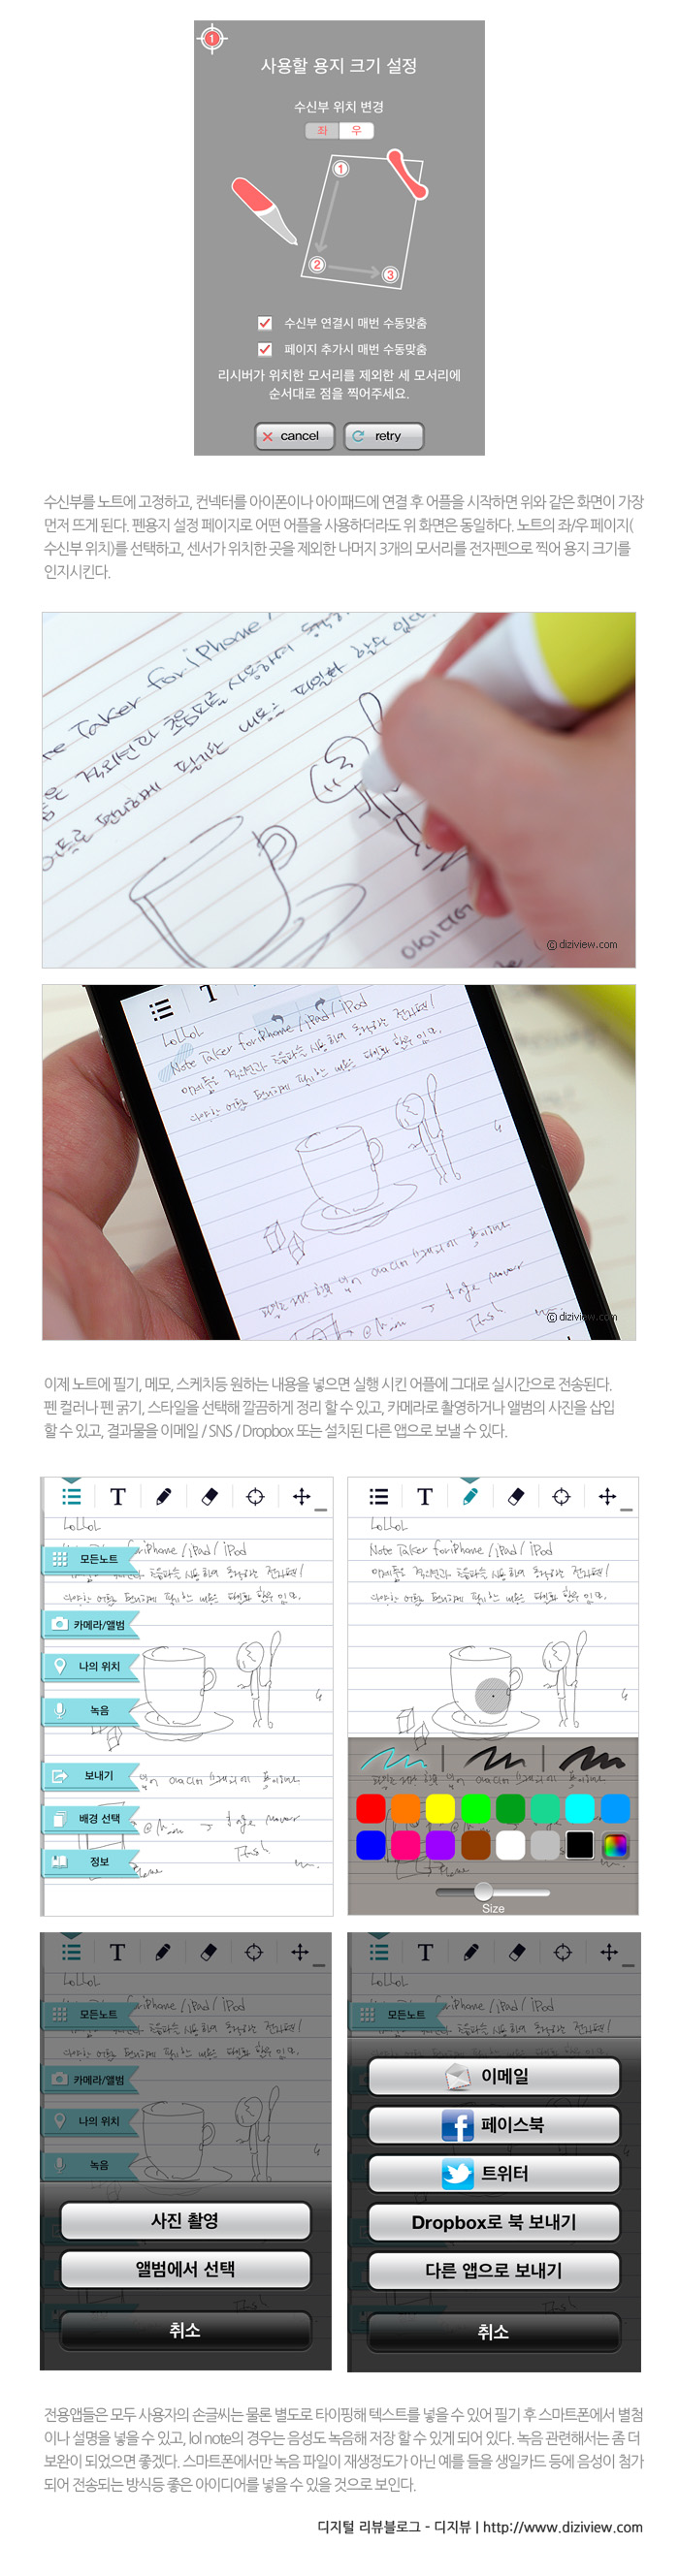 1
사용할 용지 크기 설정
수신부 위치 변경
좌 우
1
2 3
수신부 연결시 매번 수동맞춤
페이지 추가시 매번 수동맞춤
리시버가 위치한 모서리를 제외한 세 모서리에
순서대로 점을 찍어주세요.
cancel retry
수신부를 노트에 고정하고, 컨넥터를 아이폰이나 아이패드에 연결 후 어플을 시작하면 위와 같은 화면이 가장
먼저 뜨게 된다. 펜용지 설정 페이지로 어떤 어플을 사용하더라도 위 화면은 동일하다. 노트의 좌/우 페이지(
수신부 위치)를 선택하고, 센서가 위치한 곳을 제외한 나머지 3개의 모서리를 전자펜으로 찍어 용지 크기를
인지시킨다.
Taker for iPhone /
아이디어
ⓒ diziview.com
T
LoLLoL
Note Taker for iPhone / iPad / iPod
ⓒ diziview.com
이제 노트에 필기, 메모, 스케치등 원하는 내용을 넣으면 실행 시킨 어플에 그대로 실시간으로 전송된다.
펜 컬러나 펜 굵기, 스타일을 선택해 깔끔하게 정리 할 수 있고, 카메라로 촬영하거나 앨범의 사진을 삽입
할 수 있고, 결과물을 이메일 / SNS / Dropbox 또는 설치된 다른 앱으로 보낼 수 있다.
T
LoLLoL
Taker for iPhone / iPad / iPod
모든노트
카메라/앨범
나의 위치
녹음
보내기
배경 선택
정보
T
LoLLoL
Note Taker for iPhone / iPad / iPod
Size
T
LoLLoL
for iPhone / iPad / iPod
모든노트
카메라/앨범
나의 위치
녹음
사진 촬영
앨범에서 선택
취소
T
LoLLoL
for iPhone / iPad / iPod
모든노트
이메일
페이스북
트위터
Dropbox로 북 보내기
다른 앱으로 보내기
취소
전용앱들은 모두 사용자의 손글씨는 물론 별도로 타이핑해 텍스트를 넣을 수 있어 필기 후 스마트폰에서 별첨
이나 설명을 넣을 수 있고, lol note의 경우는 음성도 녹음해 저장 할 수 있게 되어 있다. 녹음 관련해서는 좀 더
보완이 되었으면 좋겠다. 스마트폰에서만 녹음 파일이 재생정도가 아닌 예를 들을 생일카드 등에 음성이 첨가
되어 전송되는 방식등 좋은 아이디어를 넣을 수 있을 것으로 보인다.
디지털 리뷰블로그 - 디지뷰 | http://www.diziview.com